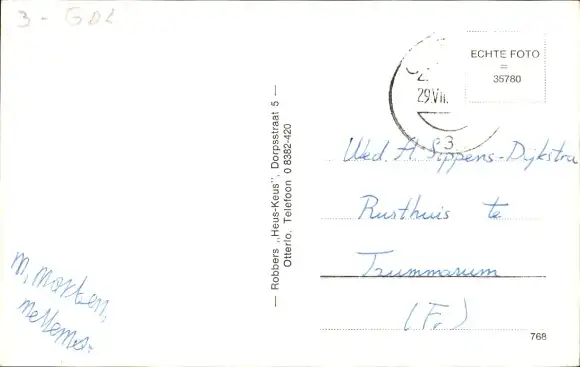 3 - GDL
ECHTE FOTO
=
35780
29.VII.
3
— Robbers „Heus-Keus", Dorpsstraat 5 —
Otterlo. Telefoon 0 8382-420
Wed. A. Sippens-Dijkstra
Rusthuis te
Tzummarum
(Fr)
M,
768